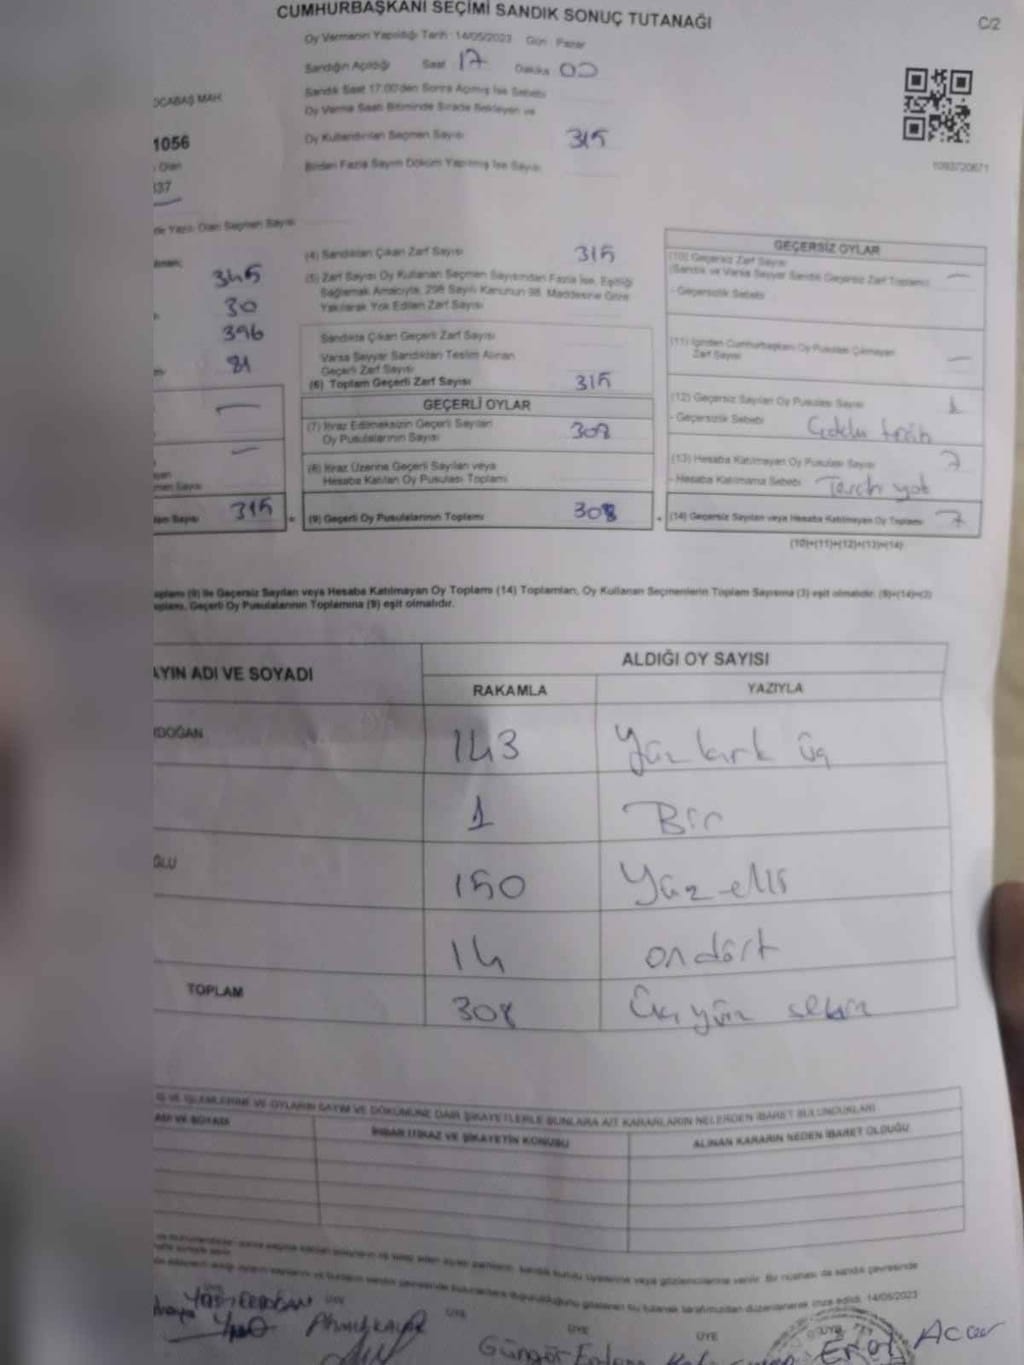 CUMHURBAŞKANI SEÇİMİ SANDIK SONUÇ TUTANAĞI
C/2
Oy Vermenin Yapıldığı Tarih : 14/05/2023 Gün : Pazar
Sandığın Açıldığı Saat 17 Dakika 00
Sandık Saat 17:00'den Sonra Açılmış İse Sebebi
OCABAŞ MAH
Oy Verme Saati Bitiminde Sırada Bekleyen ve
1056
Oy Kullandırılan Seçmen Sayısı 315
Olan
Birden Fazla Sayım Döküm Yapılmış İse Sayısı
1093720671
337
de Yazılı Olan Seçmen Sayısı
345
30
396
81
315
(4) Sandıktan Çıkan Zarf Sayısı 315
(5) Zarf Sayısı Oy Kullanan Seçmen Sayısından Fazla İse, Eşitliği
Sağlamak Amacıyla, 298 Sayılı Kanunun 98. Maddesine Göre
Yakılarak Yok Edilen Zarf Sayısı
Sandıkta Çıkan Geçerli Zarf Sayısı
Varsa Seyyar Sandıktan Teslim Alınan
Geçerli Zarf Sayısı
(6) Toplam Geçerli Zarf Sayısı 315
GEÇERLİ OYLAR
(7) İtiraz Edilmeksizin Geçerli Sayılan
Oy Pusulalarının Sayısı 308
(8) İtiraz Üzerine Geçerli Sayılan veya
Hesaba Katılan Oy Pusulası Toplamı
(9) Geçerli Oy Pusulalarının Toplamı 308
GEÇERSİZ OYLAR
(10) Geçersiz Zarf Sayısı
(Sandık ve Varsa Seyyar Sandık Geçersiz Zarf Toplamı) —
- Geçersizlik Sebebi
(11) İçinden Cumhurbaşkanı Oy Pusulası Çıkmayan
Zarf Sayısı —
(12) Geçersiz Sayılan Oy Pusulası Sayısı
- Geçersizlik Sebebi
(13) Hesaba Katılmayan Oy Pusulası Sayısı 7
- Hesaba Katılmama Sebebi
(14) Geçersiz Sayılan veya Hesaba Katılmayan Oy Toplamı 7
(10)+(11)+(12)+(13)=(14)
oplamı (9) ile Geçersiz Sayılan veya Hesaba Katılmayan Oy Toplamı (14) Toplamları, Oy Kullanan Seçmenlerin Toplam Sayısına (3) eşit olmalıdır. (9)+(14)=(3)
oplamı, Geçerli Oy Pusulalarının Toplamına (9) eşit olmalıdır.
AYIN ADI VE SOYADI
ALDIĞI OY SAYISI
RAKAMLA YAZIYLA
RDOĞAN 143 Yüz kırk üç
1 Bir
ĞLU 150 Yüz elli
14 ondört
TOPLAM 308 Üç yüz sekiz
Ş VE İŞLEMLERİNE VE OYLARIN SAYIM VE DÖKÜMÜNE DAİR ŞİKAYETLERLE BUNLARA AİT KARARLARIN NELERDEN İBARET BULUNDUKLARI
ADI VE SOYADI İHBAR İTİRAZ VE ŞİKAYETİN KONUSU ALINAN KARARIN NEDEN İBARET OLDUĞU
14/05/2023
ÜYE ÜYE ÜYE ÜYE ÜYE
Güngör
Erol Acar